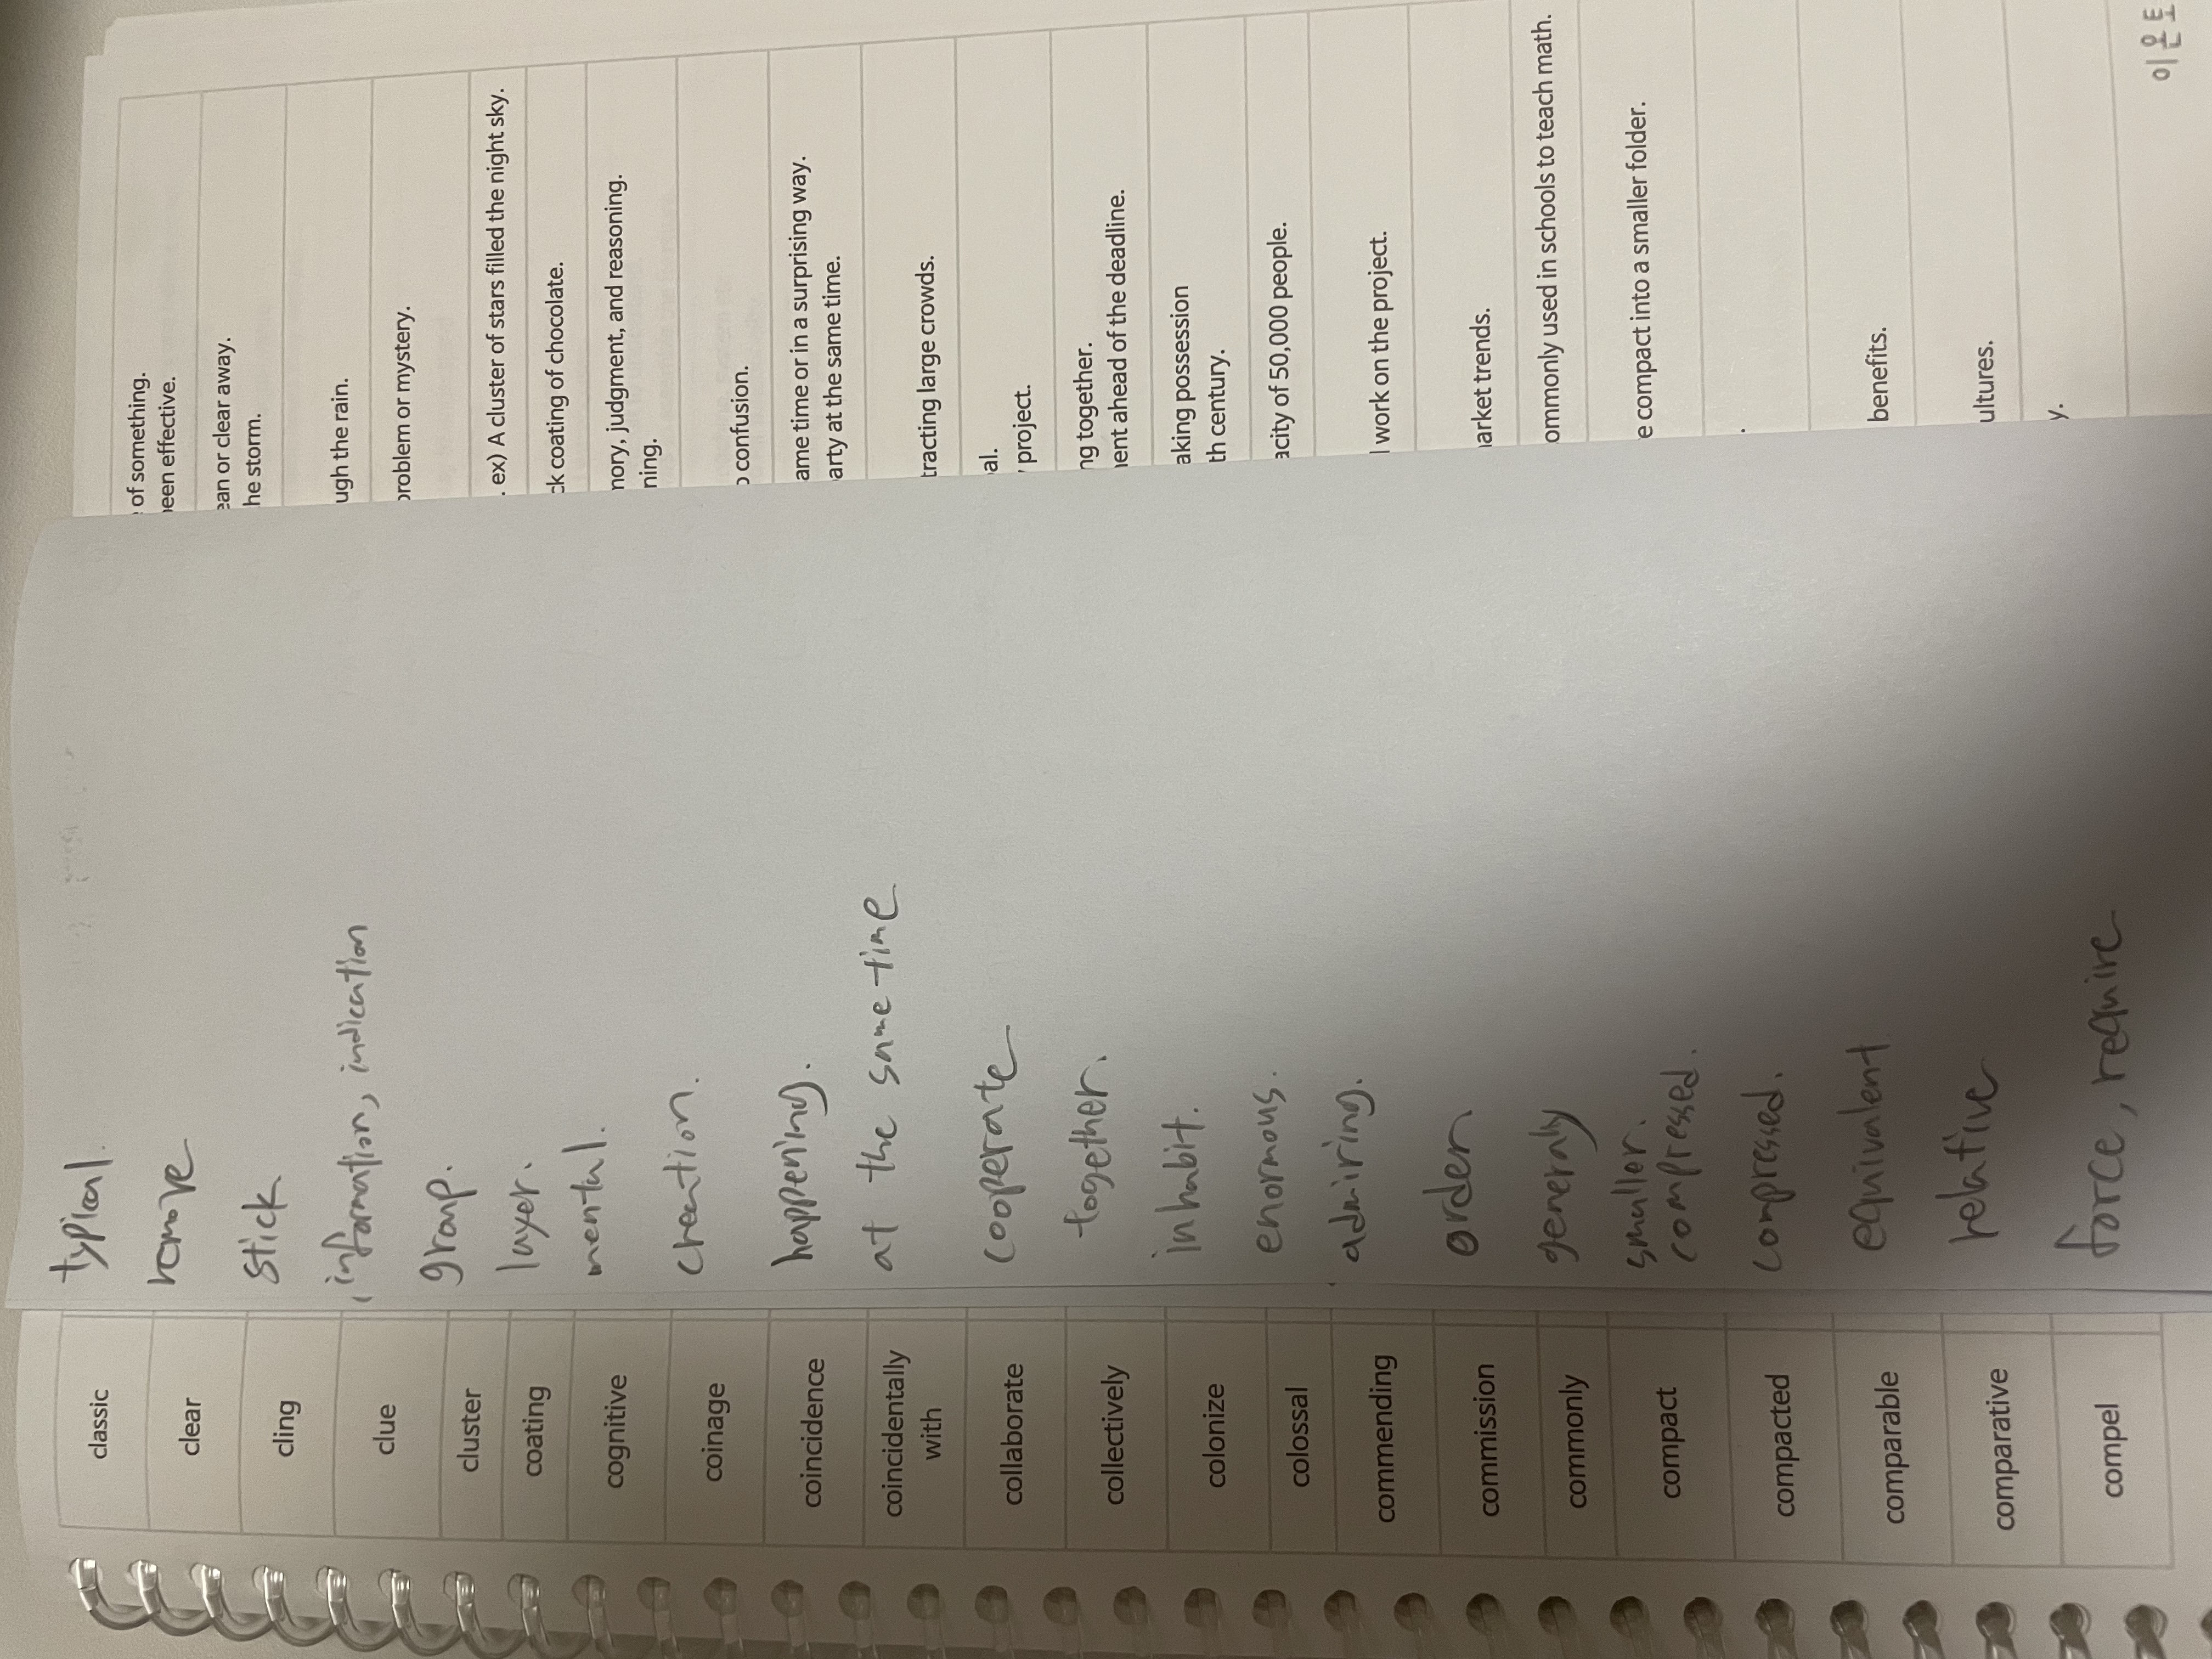 classic typical. of something.
been effective.
clear remove ean or clear away.
he storm.
cling stick ugh the rain.
clue information, indication problem or mystery.
cluster group. . ex) A cluster of stars filled the night sky.
coating layer. ck coating of chocolate.
cognitive mental. nory, judgment, and reasoning.
ning.
coinage creation. o confusion.
coincidence happening. ame time or in a surprising way.
arty at the same time.
coincidentally
with at the same time tracting large crowds.
collaborate cooperate al.
project.
collectively together. ng together.
ent ahead of the deadline.
colonize inhabit. aking possession
th century.
colossal enormous. acity of 50,000 people.
commending admiring. l work on the project.
commission order arket trends.
commonly generaly ommonly used in schools to teach math.
compact smaller.
compressed. e compact into a smaller folder.
compacted compressed. .
comparable equivalent benefits.
comparative relative ultures.
compel force, require y.
이윤토